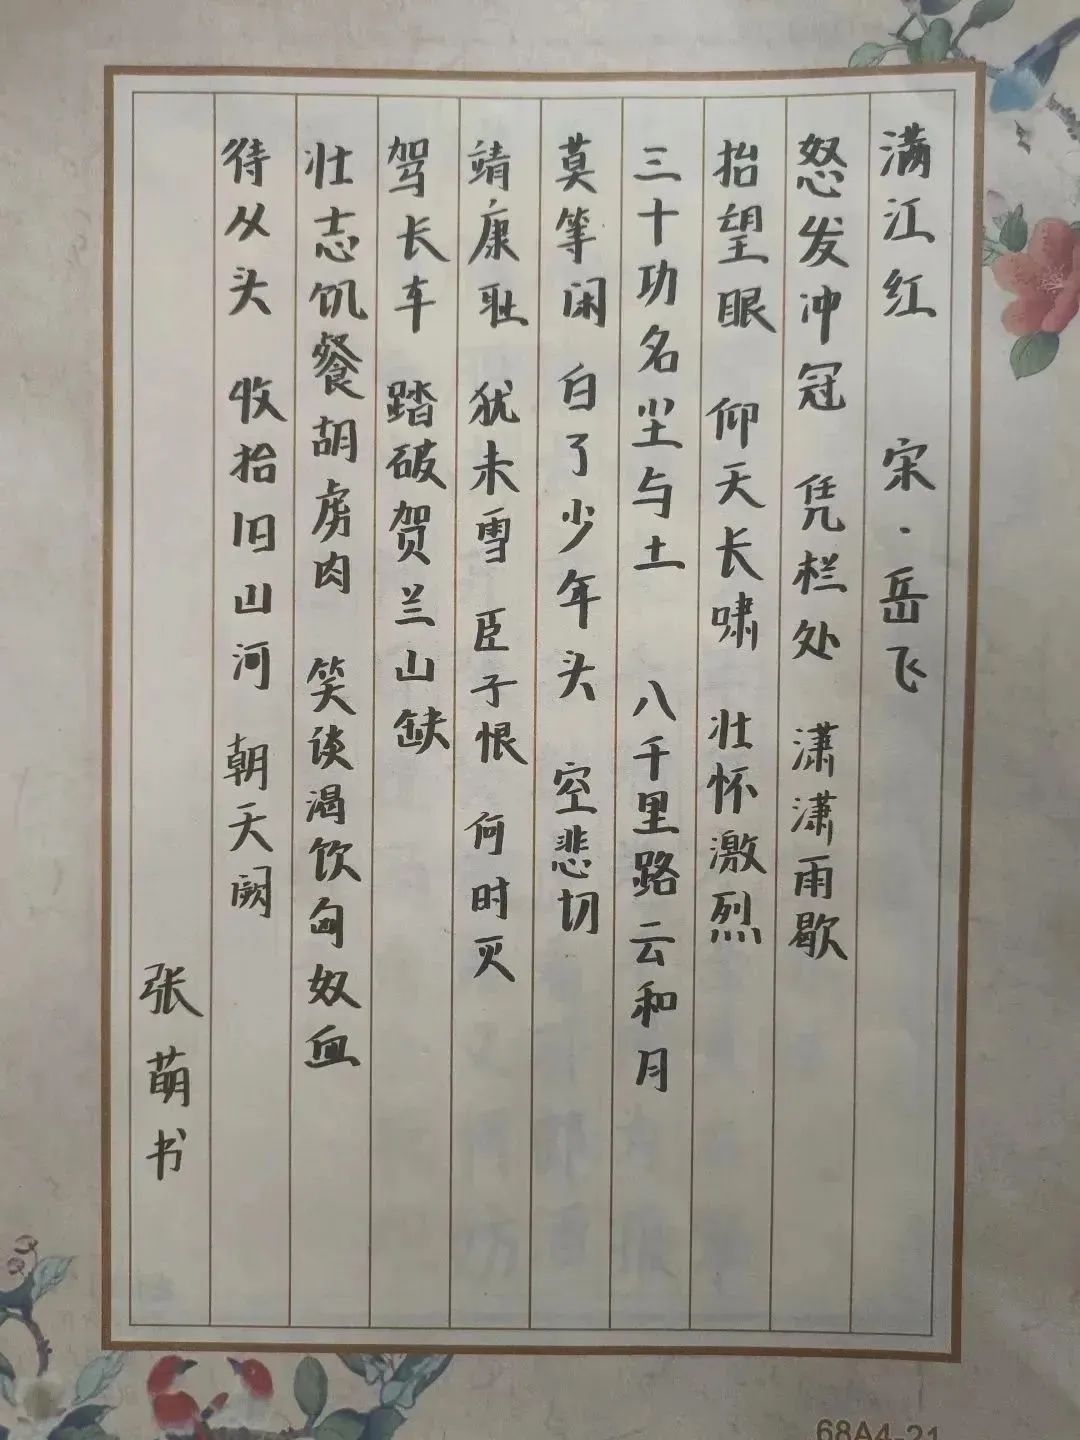 满江红 宋·岳飞
怒发冲冠 凭栏处 潇潇雨歇
抬望眼 仰天长啸 壮怀激烈
三十功名尘与土 八千里路云和月
莫等闲 白了少年头 空悲切
靖康耻 犹未雪 臣子恨 何时灭
驾长车 踏破贺兰山缺
壮志饥餐胡虏肉 笑谈渴饮匈奴血
待从头 收拾旧山河 朝天阙
张萌书
68A4-21